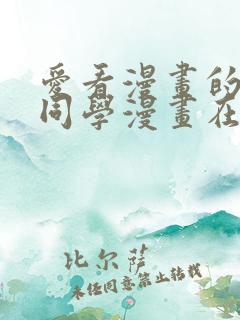 愛看漫畫的
同學漫畫在
比尔萨
未经同意禁止转载